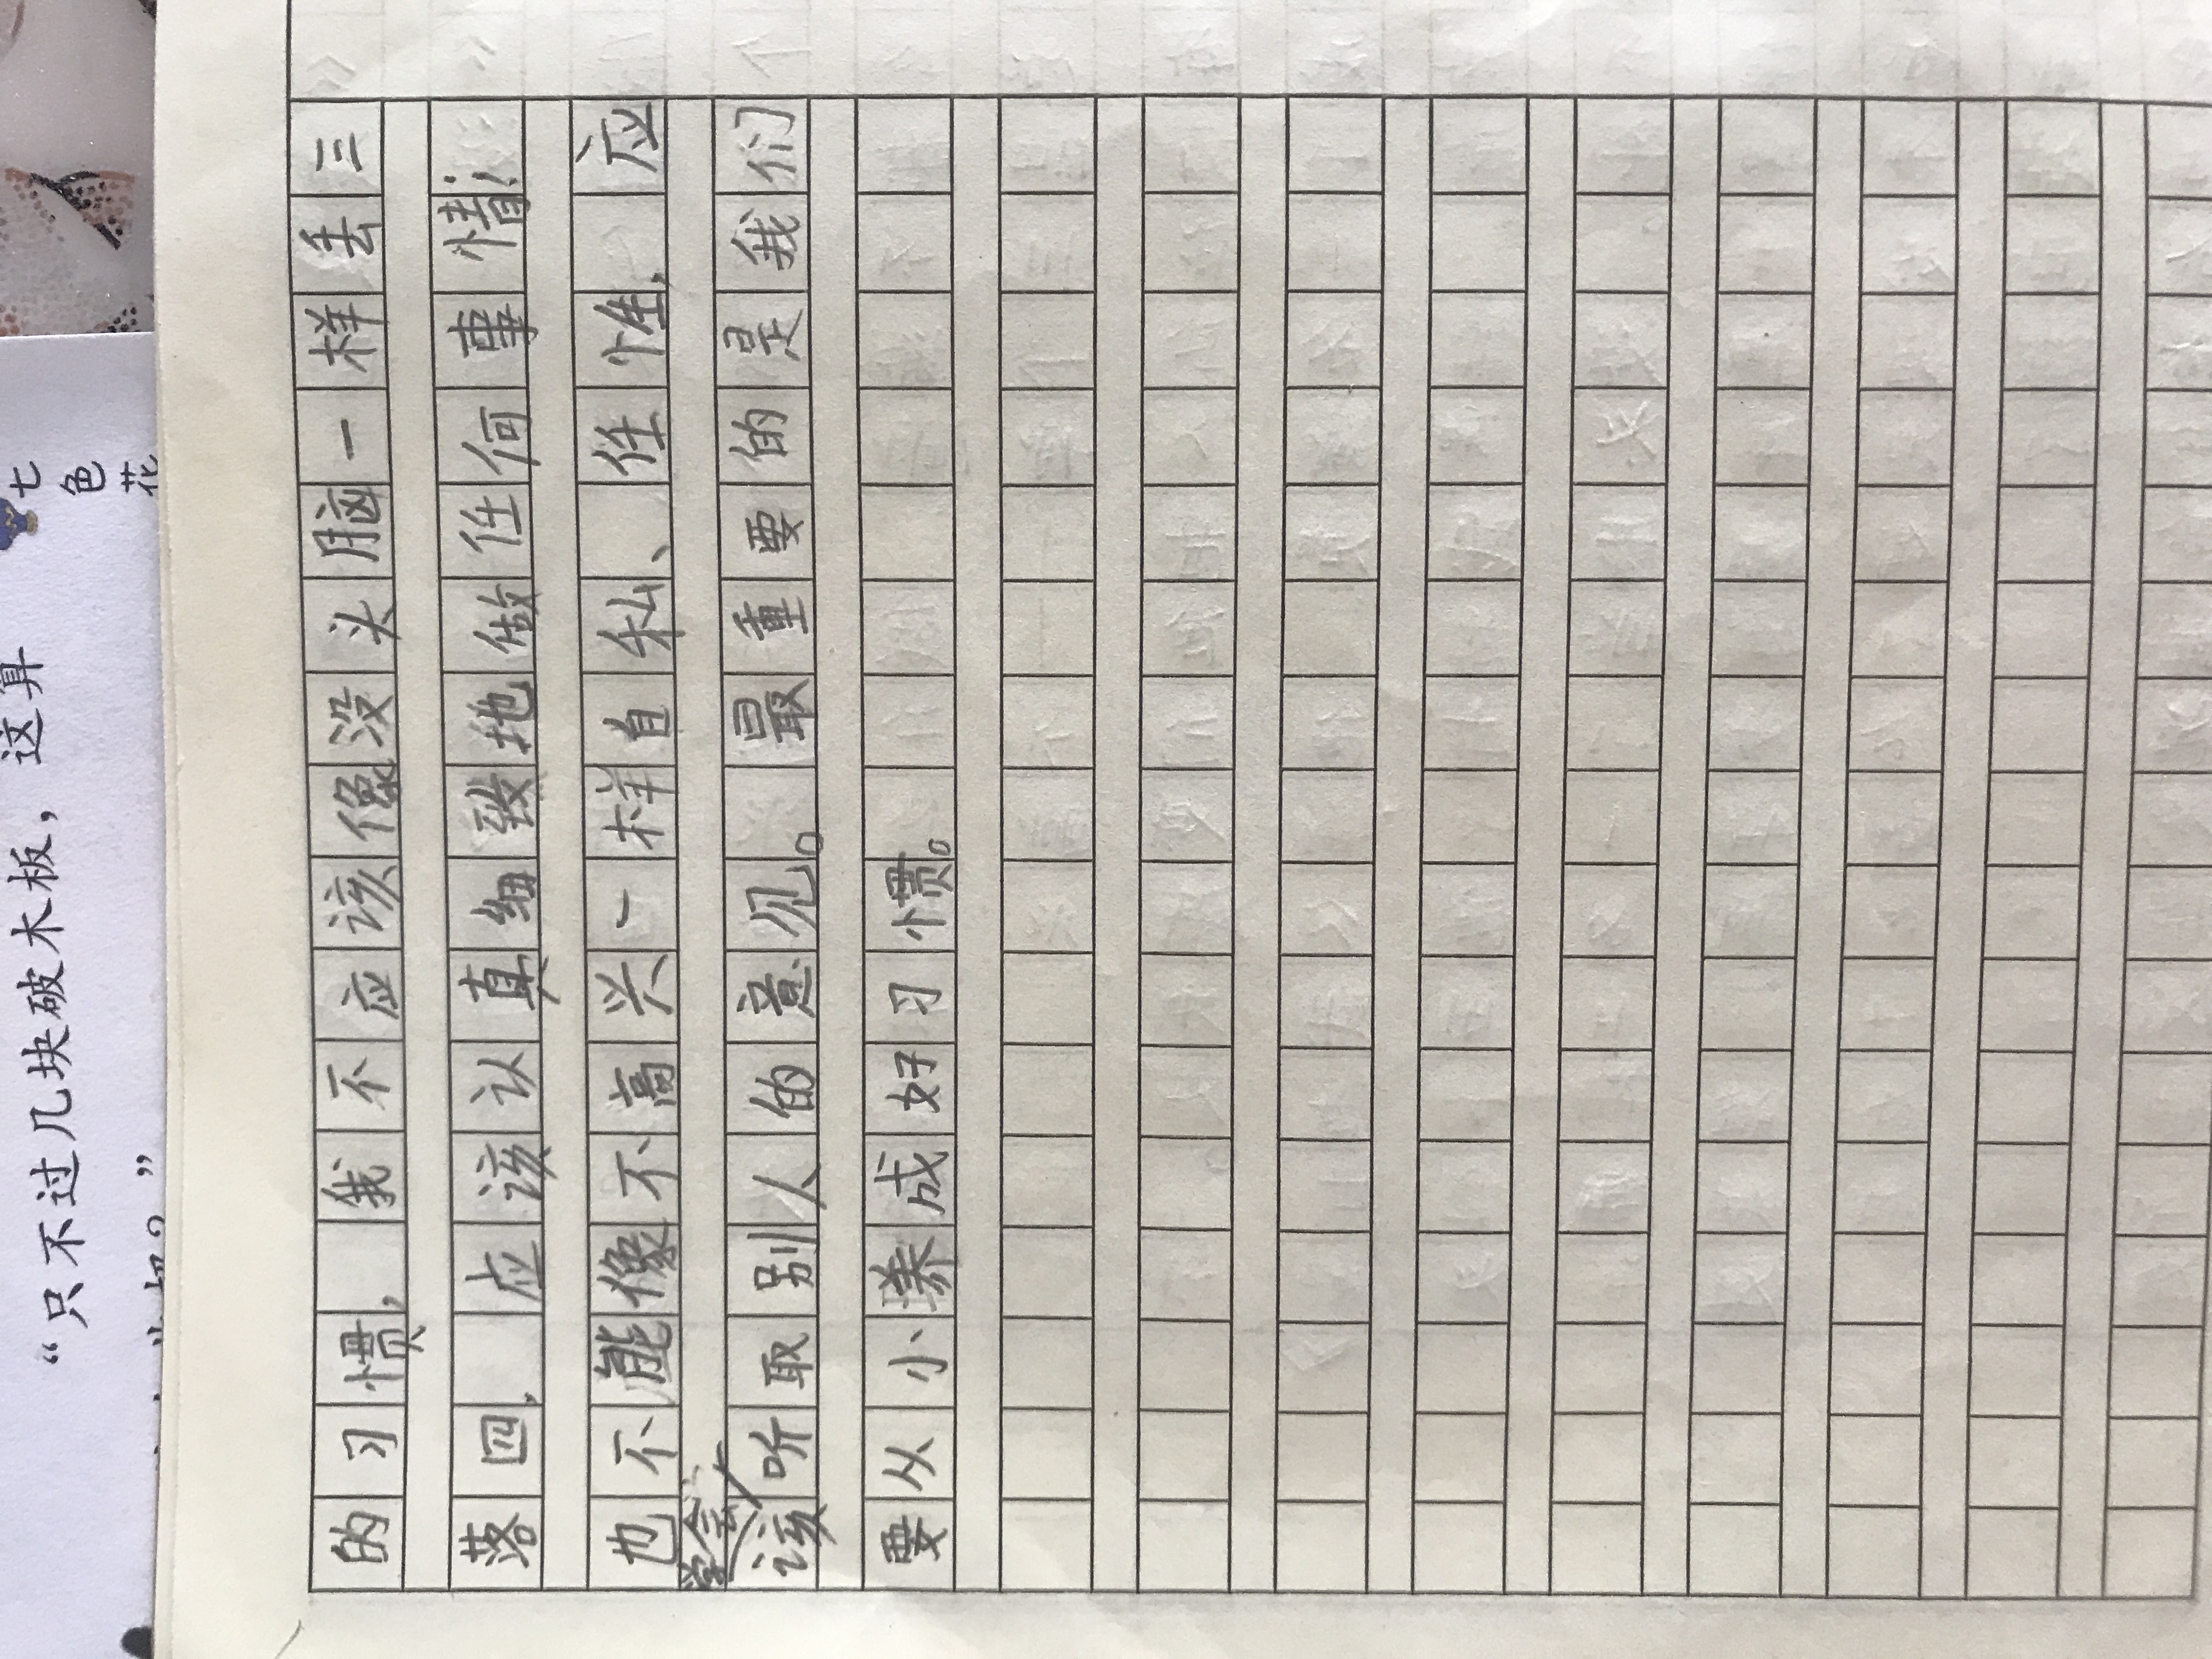 的习惯，我不应该像没头脑一样丢三
落四，应该认真细致地做任何事情；
也不能像不高兴一样自私、任性，应
学会
该听取别人的意见。最重要的是我们
要从小养成好习惯。
七色花
“只不过几块破木板，这算
”